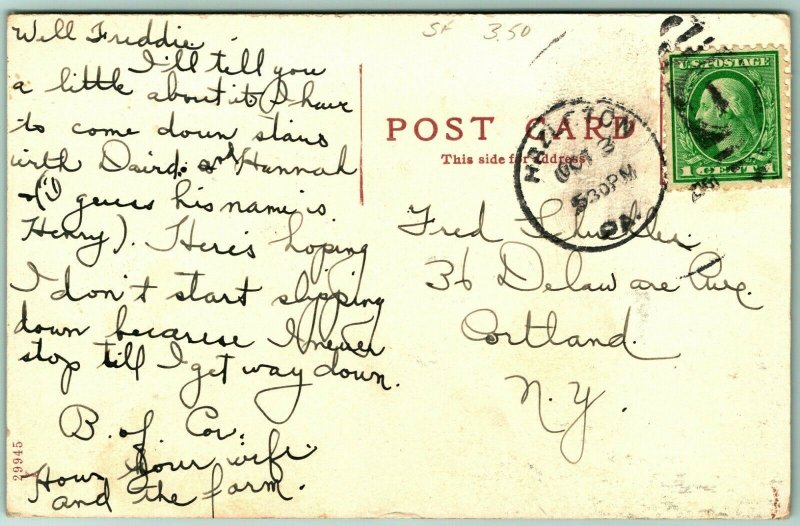 Well Freddie.
I'll tell you
a little about it (I have
to come down stairs
with David. and Hannah
(i) guess his name is
Henry). Here's hoping
I don't start slipping
down because I never
stop till I get way down.
B. of Cor.
How your wife
and the farm.
29945
St 3.50
POST CARD
This side for address
HAZLETON
OCT 2
530PM
PA.
U.S. POSTAGE
1 CENT 1
Fred
36 Delaware Ave.
Cortland.
N.Y.